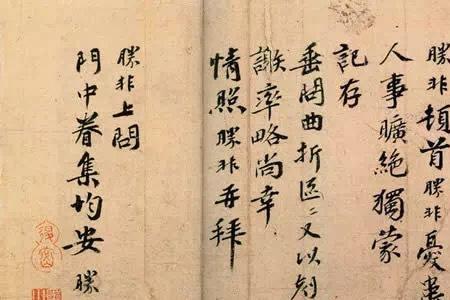 勝非頓首勝非憂患
人事曠絕獨蒙
記存
垂問曲折區〻又以
率略尚幸
情照勝非再拜
勝非上問
門中眷集均安 勝